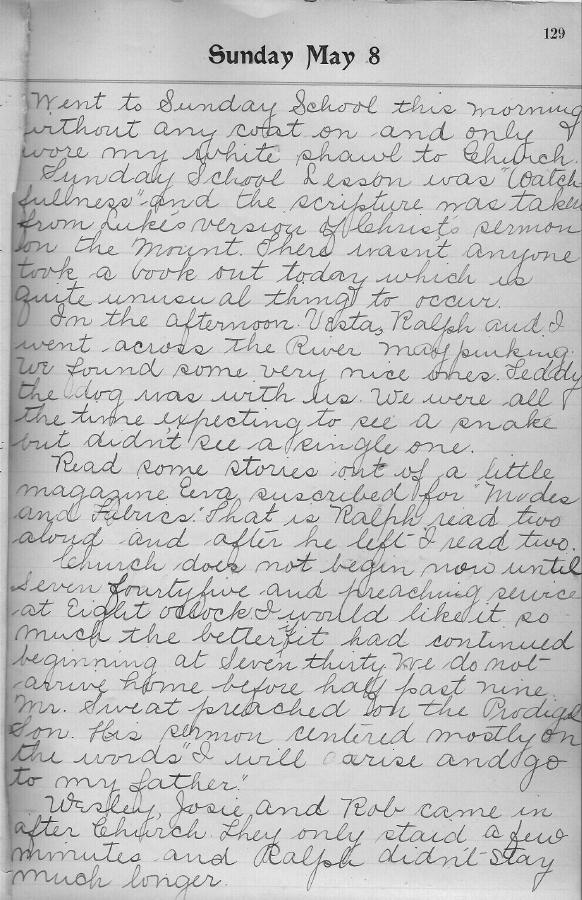 129
Sunday May 8
Went to Sunday School this morning
without any coat on and only I
wore my white shawl to Church.
Sunday School Lesson was "Watch
fullness" and the scripture was taken
from Luke's version of Christ's sermon
on the Mount. There wasn't anyone
took a book out today which is
quite unusual thing to occur.
In the afternoon Vesta, Ralph and I
went across the River maypinking.
We found some very nice ones. Teddy
the dog was with us. We were all
the time expecting to see a snake
but didn't see a single one.
Read some stories out of a little
magazine Eva suscribed for "Modes
and Fabrics." That is Ralph read two
aloud and after he left I read two.
Church does not begin now until
Seven fourtyfive and preaching service
at Eight oclock I would like it so
much the better if it had continued
beginning at Seven thirty. We do not
arrive home before half past nine.
Mr. Sweat preached on the Prodigal
Son. His sermon centered mostly on
the words "I will arise and go
to my father."
Wesley, Josie and Rob came in
after Church. They only staid a few
minutes and Ralph didn't stay
much longer.